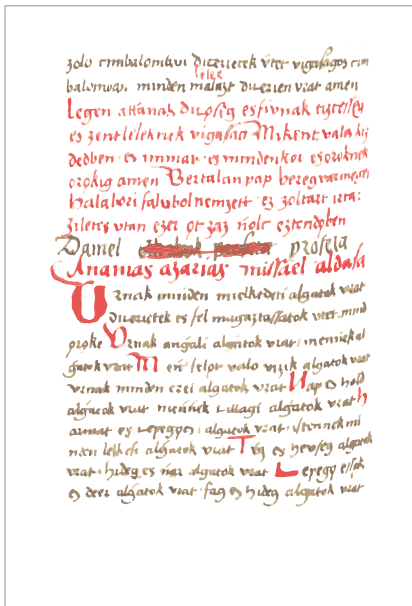 zolo cimbalomban diczerietek vtet vigasagos cim
balomwan minden lelek diczerien vrat amen
Legen attianak diczoseg es fivnak tiztesseg
es zent leleknek vigasag Mikent vala kez
dedben es immar es mindenkor es oroknek
orokig amen Bertalan pap beregvarmegei
halabori falubol nemzett ez zoltart irta
ziletes vtan ezer ot zaz nolc eztendoben
Daniel profeta
Ananias azarias missael aldasa
Vrnak minden mielkedeti algatok vrat
diczerietek es fel magaztassatok vtet mind
oroke Vrnak angali algatok vrat menniek al
gatok vrat Men felot valo vizik algatok vrat
vrnak minden erei algatok vrat Nap es hold
algatok vrat menniek illagi algatok vrat h
armat es algatok vrat istennek mi
nden lelkei algatok vrat Tiz es hevseg algatok
vrat hideg es nar algatok vrat
es deer algatok vrat fag es hideg algatok vrat